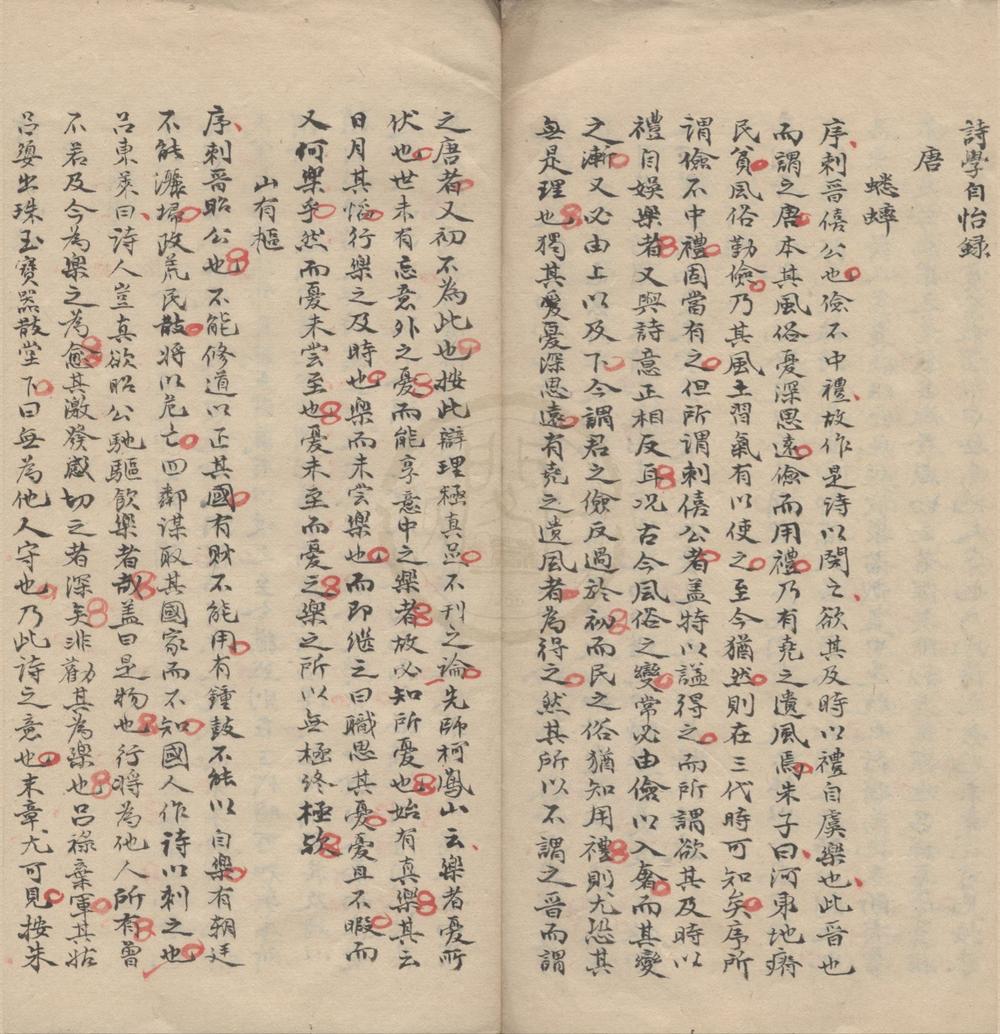 詩學自怡録
唐
蟋蟀
序刺晉僖公也儉不中禮故作是詩以閔之欲其及時以禮自虞樂也此晉也
而謂之唐本其風俗憂深思遠儉而用禮乃有堯之遺風焉朱子曰河東地瘠
民貧風俗勤儉乃其風土習氣有以使之至今猶然則在三代時可知矣序所
謂儉不中禮固當有之但所謂刺僖公者蓋特以謚得之而所謂欲其及時以
禮自娛樂者又與詩意正相反耳况古今風俗之變常必由儉以入奢而其變
之漸又必由上以及下今謂君之儉反過於初而民之俗猶知用禮則尤恐其
無是理也獨其憂憂深思遠有堯之遺風者為得之然其所以不謂之晉而謂
之唐者又初不為此也按此辯理極真並不刊之論先師柯鳳山云樂者憂所
伏也世未有忘意外之憂而能享意中之樂者故必知所憂也始有真樂其云
日月其慆行樂之及時也樂而未嘗樂也而即继之曰職思其憂憂且不暇而
又何樂乎然而憂未嘗至也憂未至而憂之樂之所以無極終極欤
山有樞
序刺晉昭公也不能修道以正其國有财不能用有鍾鼓不能以自樂有朝廷
不能灑掃政荒民散将以危亡四鄰謀取其國家而不知國人作詩以刺之也
吕東萊曰詩人豈真欲昭公馳驅飲樂者哉蓋曰是物也行将為他人所有曾
不若及今為樂之為愈其激發感切之者深矣非勸其為樂也吕祿棄軍其姑
吕嬃出珠玉寶器散堂下曰無為他人守也乃此詩之意也末章尤可見按朱